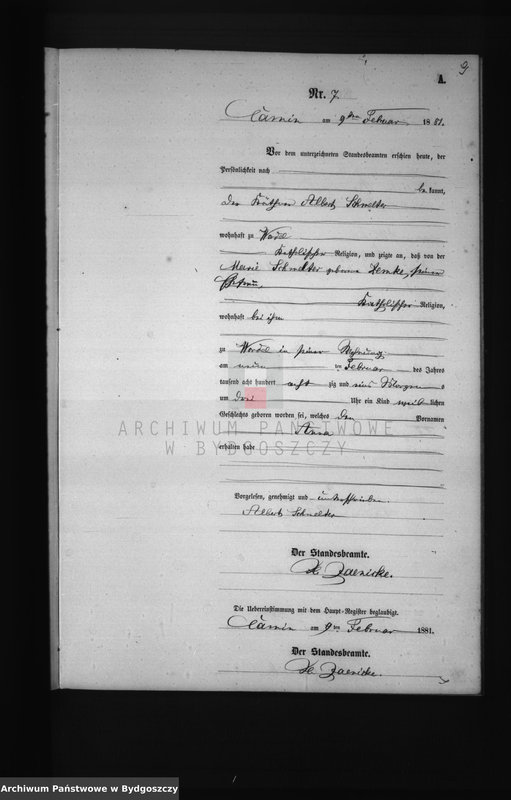 9
A.
Nr. 7
Camin am 9ten Februar 1881.
Vor dem unterzeichneten Standesbeamten erschien heute, der
Persönlichkeit nach
be kannt,
der Käthner Albert Schmelter
wohnhaft zu
Katholischer Religion, und zeigte an, daß von der
Marie Schmelter geborene Lemke, seiner
Ehefrau
Katholischer Religion,
wohnhaft bei ihm
zu in seiner Wohnung
am neun ten Februar des Jahres
tausend acht hundert acht zig und eins Morgens
um drei Uhr ein Kind weib lichen
Geschlechts geboren worden sei, welches den Vornamen
Anna
erhalten habe
ARCHIWUM PAŃSTWOWE
W BYDGOSZCZY
Vorgelesen, genehmigt und unterschrieben
Albert Schmelter
Der Standesbeamte.
Jaenicke.
Die Uebereinstimmung mit dem Haupt-Register beglaubigt.
Camin am 9ten Februar 1881.
Der Standesbeamte.
Jaenicke.
Archiwum Państwowe w Bydgoszczy